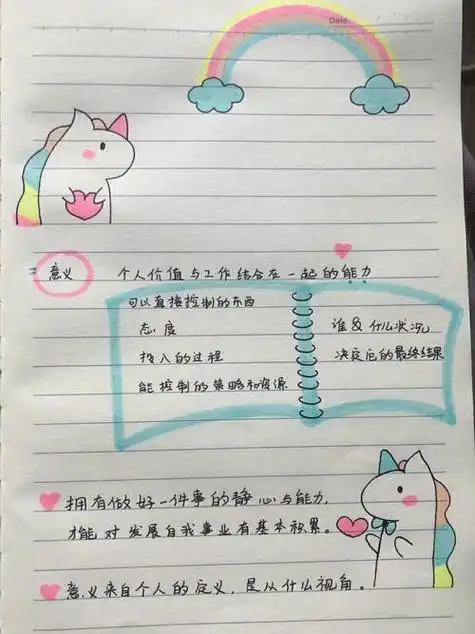 Date:
意义 个人价值与工作结合在一起的能力
可以直接控制的东西
态度
投入的过程
能控制的策略和资源
谁&什么状况
决定它的最终结果
拥有做好一件事的静心与能力，
才能对发展自我事业有基本积累。
意义来自个人的定义，是从什么视角。